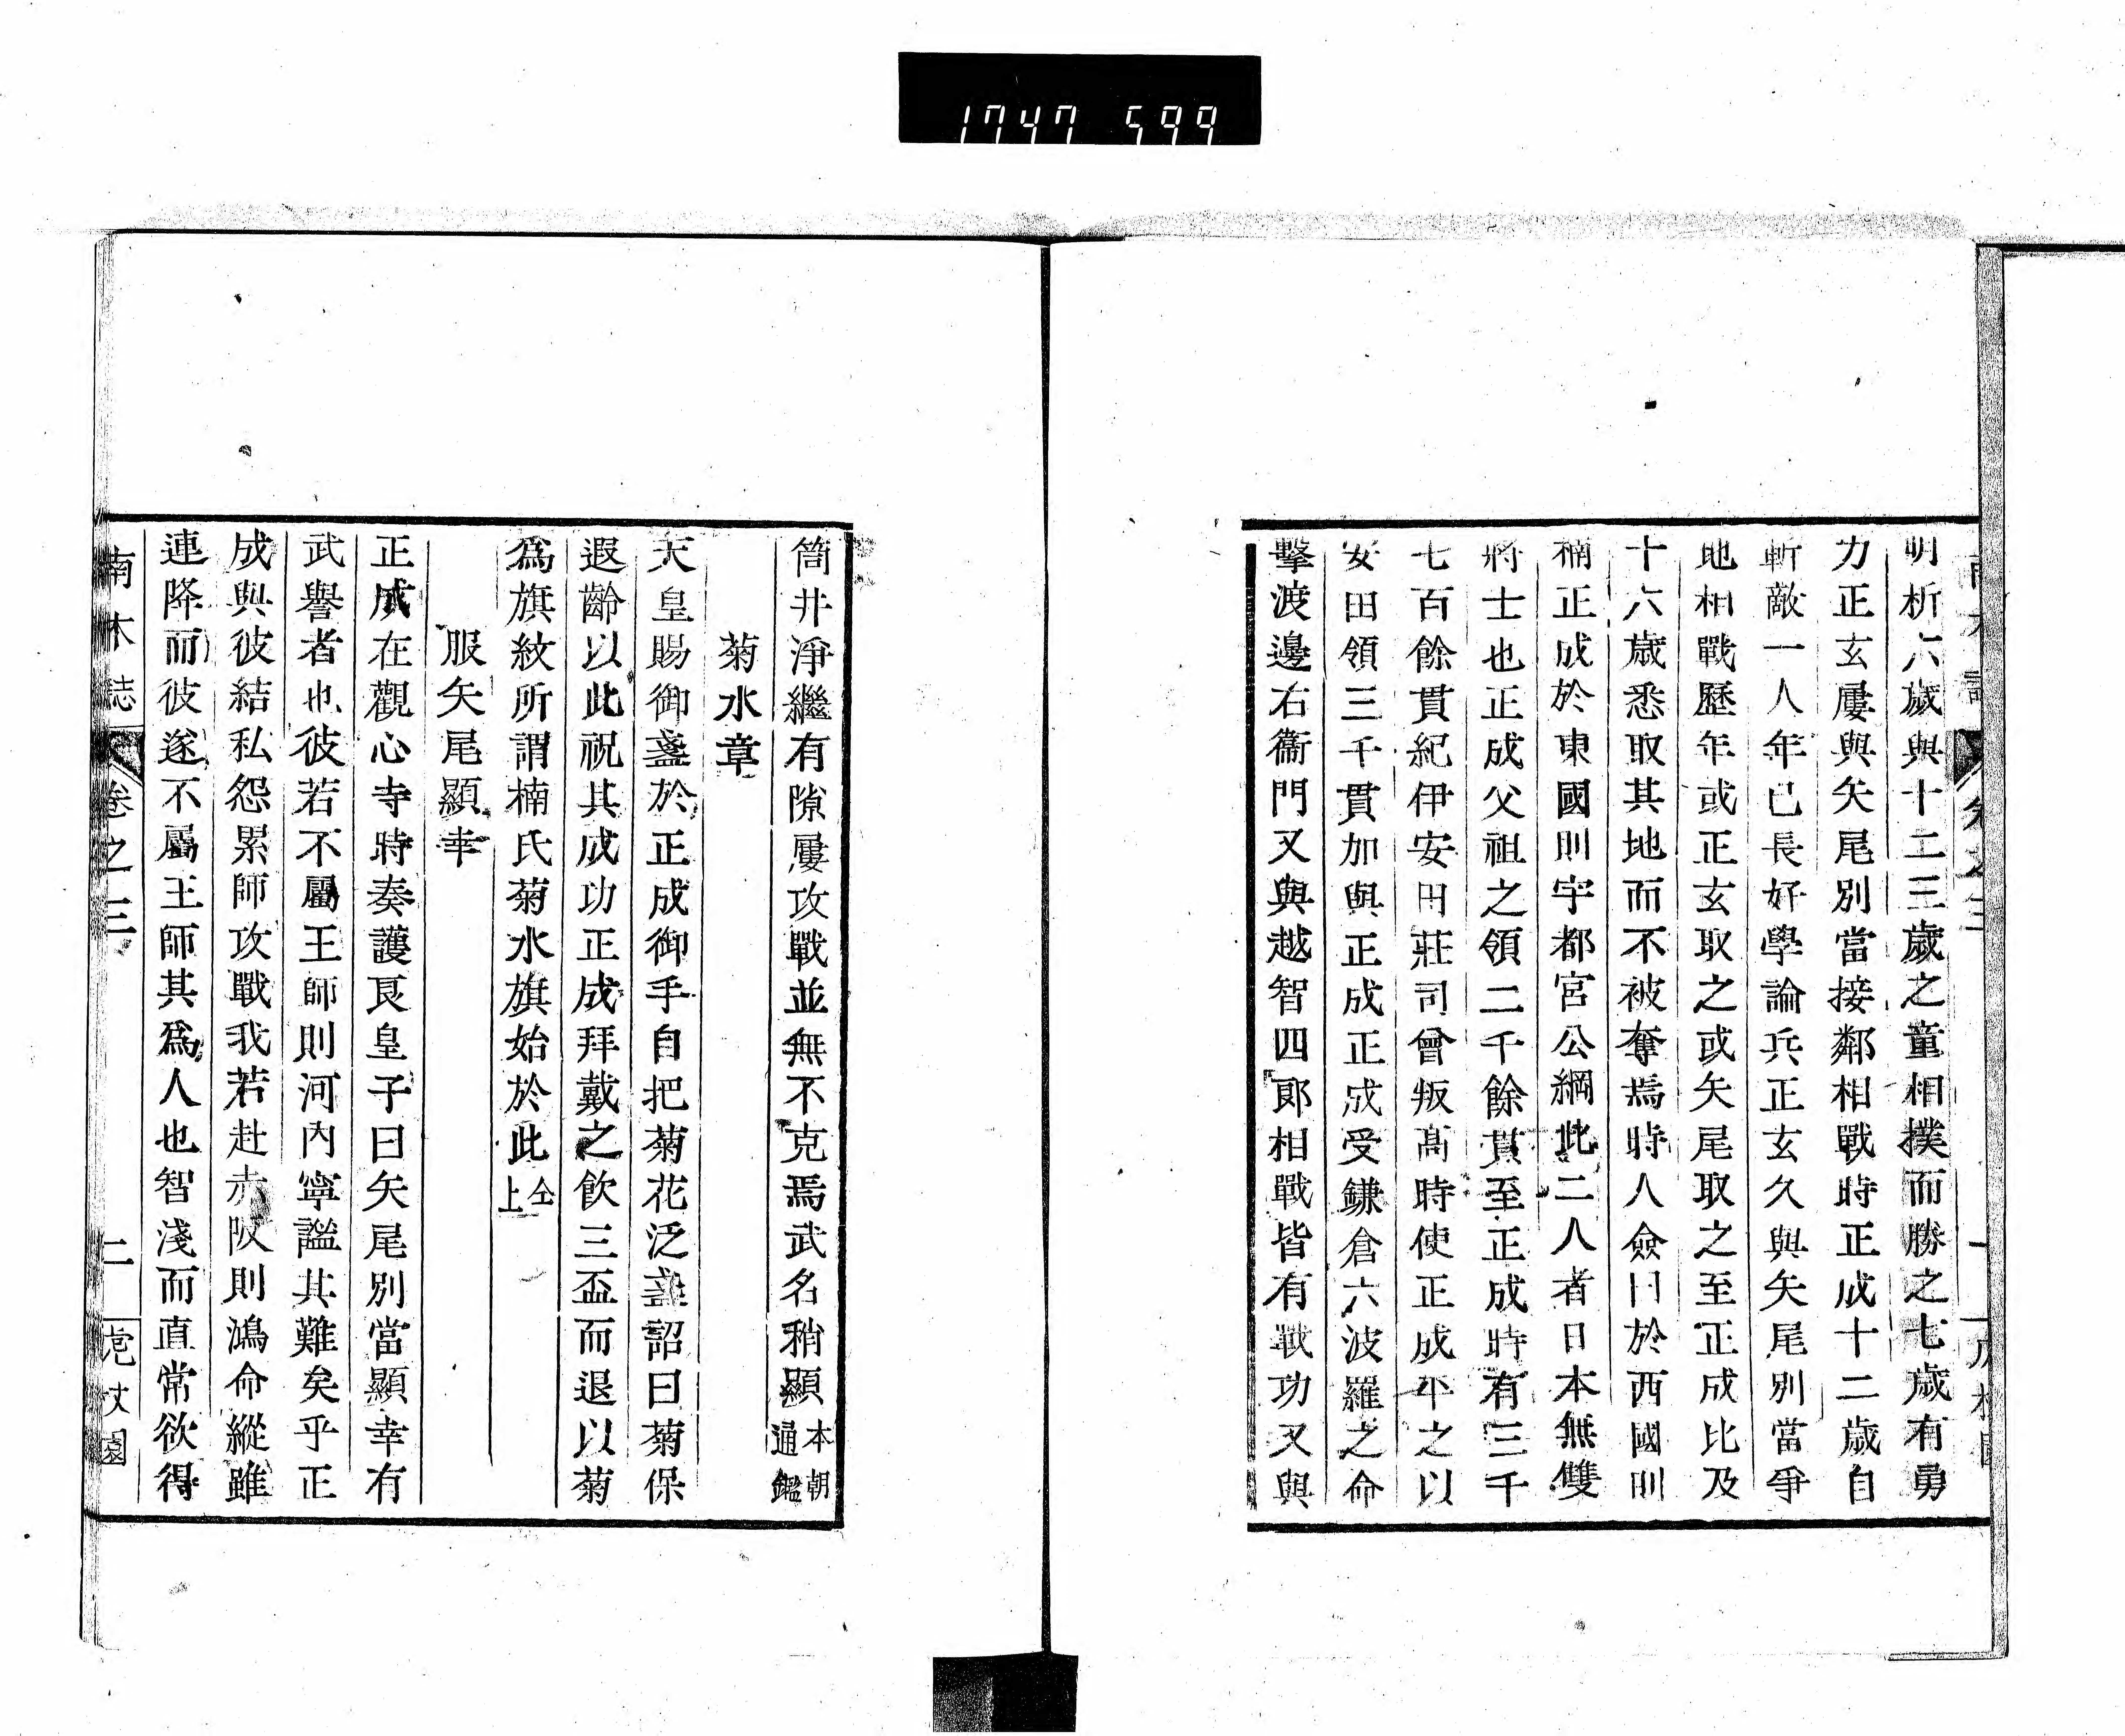 1747 599
明析六歲與十二三歲之童相撲而勝之七歲有勇
力正玄屢與矢尾別當接鄰相戰時正成十二歲自
斬敵一人年已長好學論兵正玄久與矢尾別當爭
地相戰歷年或正玄取之或矢尾取之至正成比及
十六歲悉取其地而不被奪焉時人僉曰於西國則
楠正成於東國則宇都宮公綱此二人者日本無雙
將士也正成父祖之領二千餘貫至正成時有三千
七百餘貫紀伊安田莊司曾叛高時使正成平之以
安田領三千貫加與正成正成受鎌倉六波羅之命
擊渡邊右衞門又與越智四郎相戰皆有戰功又與
筒井淨繼有隙屢攻戰並無不克焉武名稍顯本朝通鑑
菊水章
天皇賜御盞於正成御手自把菊花泛盞詔曰菊保
遐齡以此祝其成功正成拜戴之飲三盃而退以菊
爲旗紋所謂楠氏菊水旗始於此仝上
服矢尾顯幸
正成在觀心寺時奏護良皇子曰矢尾別當顯幸有
武譽者也彼若不屬王師則河內寧謐其難矣乎正
成與彼結私怨累師攻戰我若赴赤阪則鴻命縱雖
連降而彼遂不屬王師其爲人也智淺而直常欲得
南木誌 卷之三 二